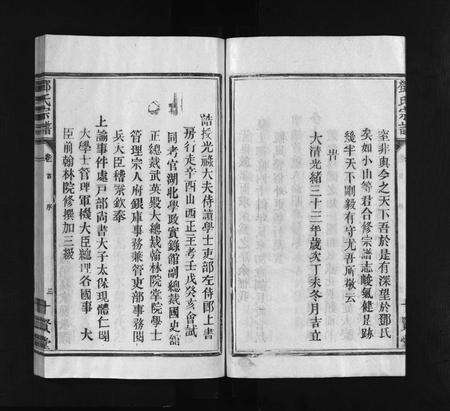 室非與今之天下吾於是有深望於鄧氏
矣如小山等君合修宗譜志峻氣健是跡
幾半天下剛毅有守尤吾所敬云
旹
大清光緒三十三年歲次丁未冬月吉立
誥授光祿大夫侍讀學士吏部左侍郎上書
房行走辛酉山西正主考壬戌癸亥會試
同考官湖北學政實錄館副總裁國史館
正總裁武英殿大總裁翰林院掌院學士
管理宗人府銀庫事務兼管吏部事務閱
兵大臣稽察欽奉
上諭事件處戶部尚書大子太保現體仁閣
大學士管理軍機大臣總理各國事 大
臣前翰林院修撰加三級
鄧氏宗譜
卷首 序
三
十賢堂
鄧氏宗譜
十賢堂